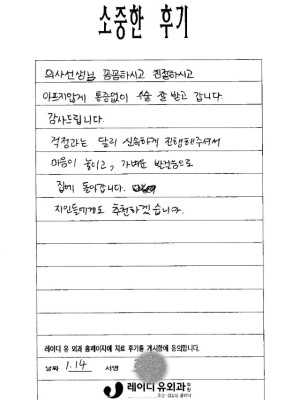 소중한 후기
의사선생님 꼼꼼하시고 친절하시고
아프지않게 통증없이 수술 잘 받고 갑니다.
감사드립니다.
걱정과는 달리 신속하게 진행해주셔서
마음이 놓이고, 가벼운 발걸음으로
집에 돌아갑니다.
지인들에게도 추천하겠습니다.
레이디 유 외과 홈페이지에 치료 후기를 게시함에 동의합니다.
날짜 1.14 서명
레이디 유외과